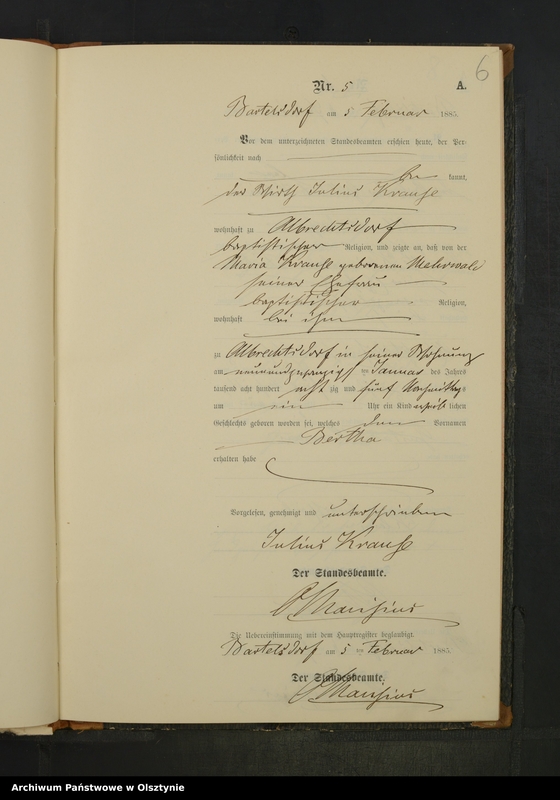 6
Nr. 5 A.
Bartelsdorf am 5 Februar 1885.
Vor dem unterzeichneten Standesbeamten erschien heute, der Per-
sönlichkeit nach
be kannt,
der Wirth Julius Krause
wohnhaft zu Albrechtsdorf
baptistischer Religion, und zeigte an, daß von der
Maria Krause geborenen Mehrwald
seiner Ehefrau
baptistischer Religion,
wohnhaft bei ihm
zu Albrechtsdorf in seiner Wohnung
am neunundzwanzigst ten Januar des Jahres
tausend acht hundert acht zig und fünf Nachmittags
um ein Uhr ein Kind weib lichen
Geschlechts geboren worden sei, welches den Vornamen
Bertha
erhalten habe
Vorgelesen, genehmigt und unterschrieben
Julius Krause
Der Standesbeamte.
Die Uebereinstimmung mit dem Hauptregister beglaubigt.
Bartelsdorf am 5 ten Februar 1885
Der Standesbeamte.
Archiwum Państwowe w Olsztynie